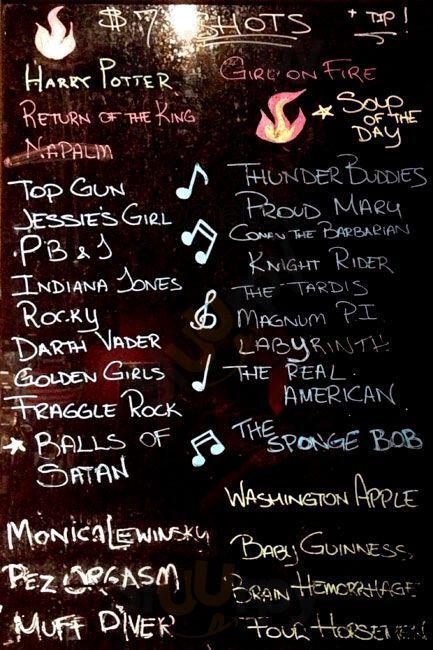 $7 SHOTS
+ TIP!
HARRY POTTER
RETURN OF THE KING
NAPALM
TOP GUN
JESSIE'S GIRL
PB & J
INDIANA JONES
ROCKY
DARTH VADER
GOLDEN GIRLS
FRAGGLE ROCK
BALLS OF
SATAN
MONICA LEWINSKY
PEZ ORGASM
MUFF DIVER
GIRL ON FIRE
SOUP
OF THE
DAY
THUNDER BUDDIES
PROUD MARY
CONAN THE BARBARIAN
KNIGHT RIDER
THE TARDIS
MAGNUM PI
LABYRINTH
THE REAL
AMERICAN
THE
SPONGE BOB
WASHINGTON APPLE
BABY GUINNESS
BRAIN HEMORRHAGE
FOUR HORSEMEN